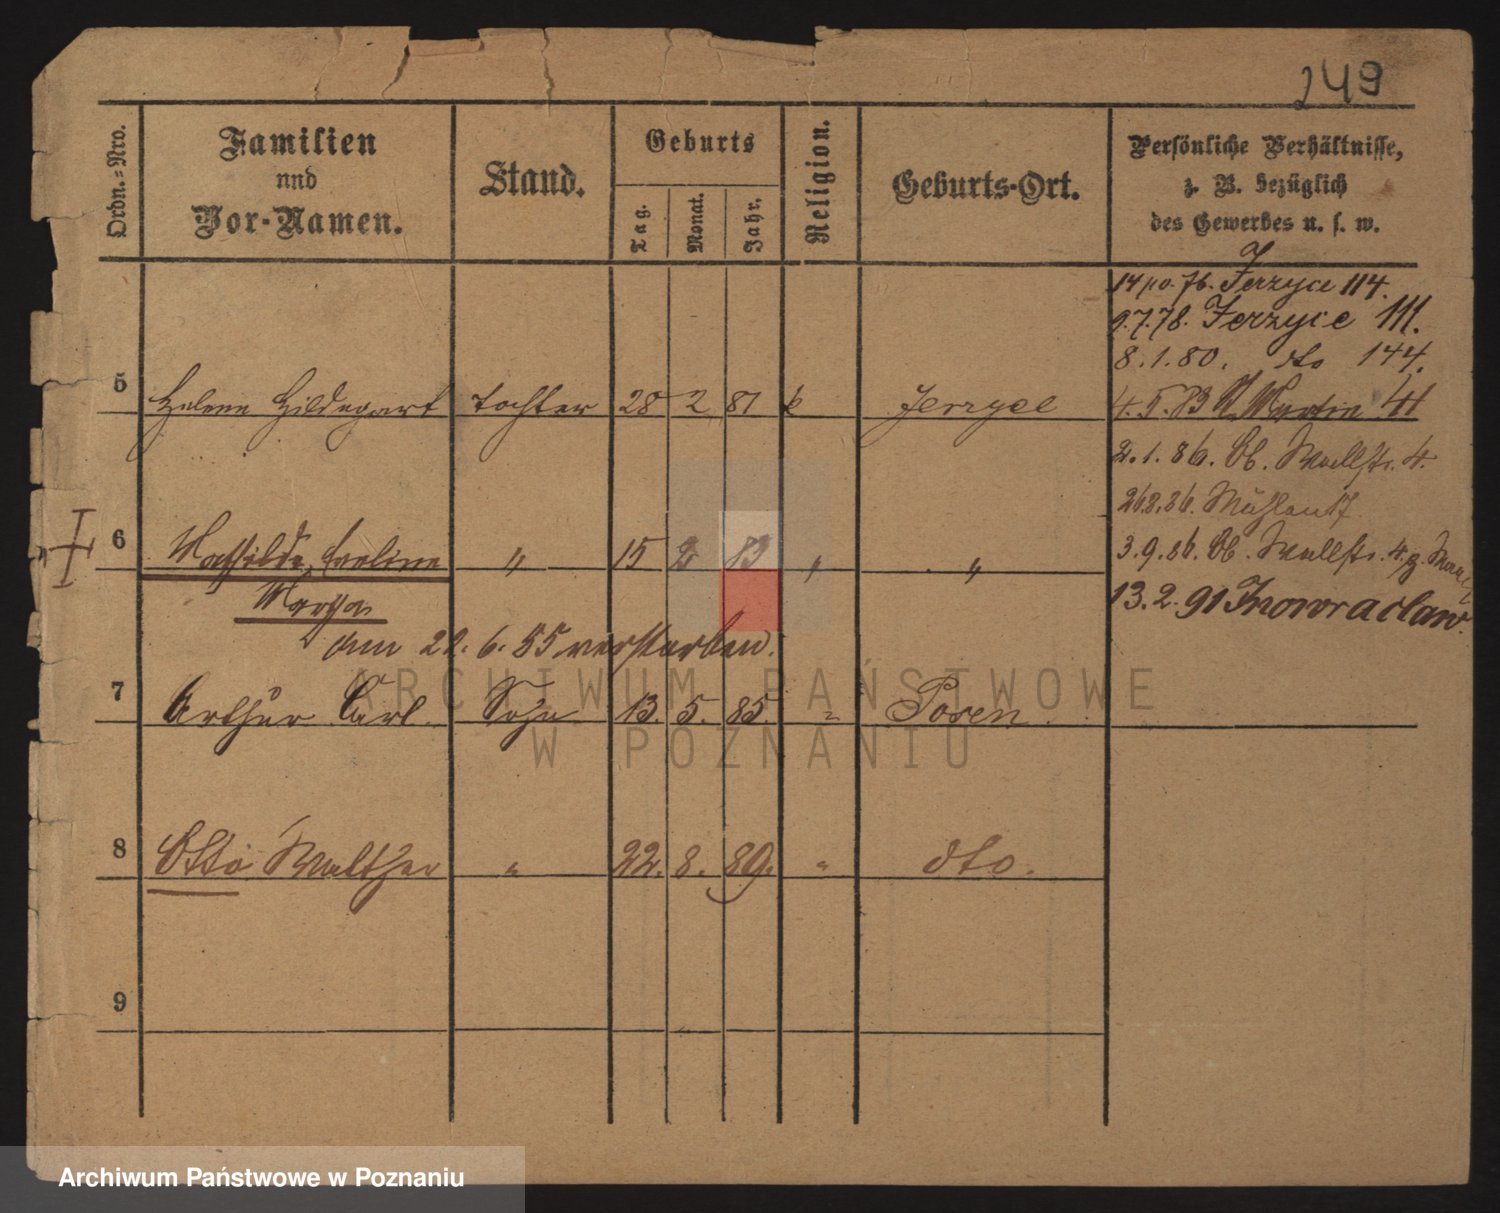 249
Ordn.=Nro.
Familien
und
Vor-Namen.
Stand.
Geburts
Tag.
Monat.
Jahr.
Religion.
Geburts-Ort.
Persönliche Verhältnisse,
z. B. bezüglich
des Gewerbes u. s. w.
14/10. 76. Jerzyce 114.
9.7.78. Jerzyce 111.
8.1.80. dto 144.
5 Helene Hildegart Tochter 28 2 81 k Jerzyce
4.5.83 St Martin 41
2.1.86. Ob. Wallstr. 4.
26.8.86. Mühlen 17
6 Mathilde, Eveline " 15 2 83 " "
3.9.86. Ob. Wallstr. 4.
Martha
13.2.91 Inowraclaw.
am 22. 6. 85 verstorben.
7 Arthur Carl. Sohn 13. 5. 85. " Posen.
8 Otto Walther " 22. 8. 89. " dto.
9
ARCHIWUM PAŃSTWOWE
W POZNANIU
Archiwum Państwowe w Poznaniu